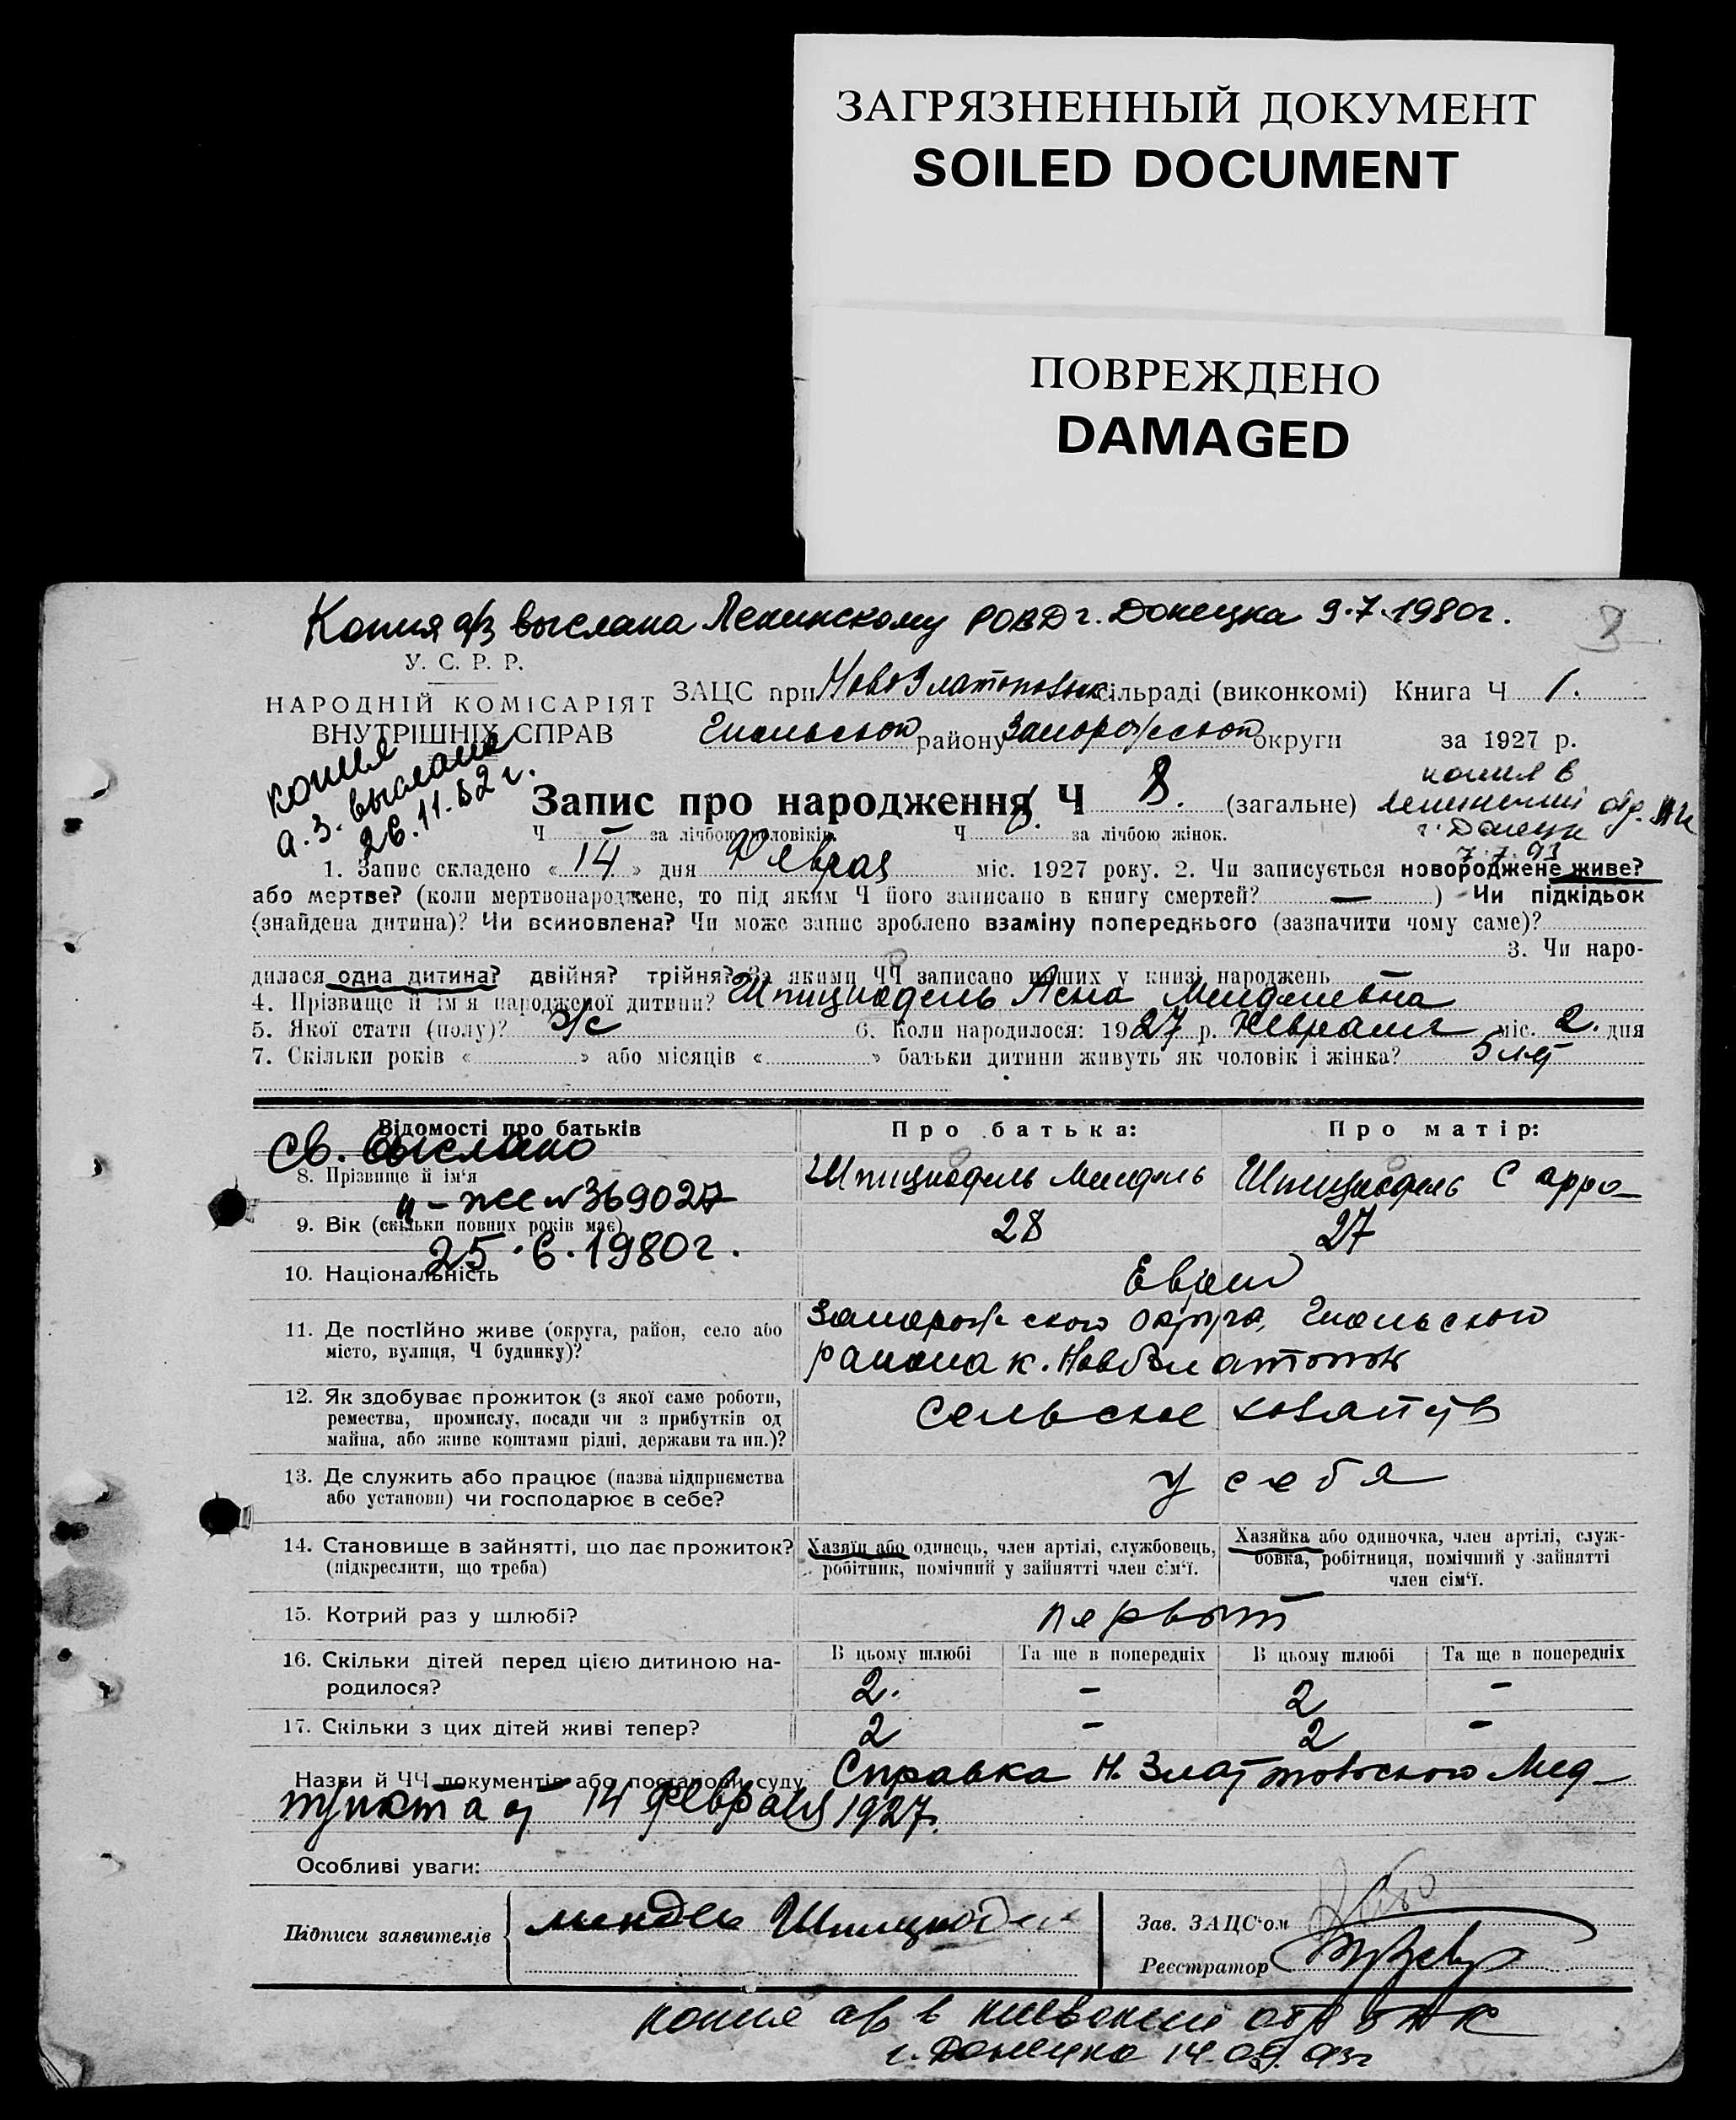 ЗАГРЯЗНЕННЫЙ ДОКУМЕНТ
SOILED DOCUMENT
ПОВРЕЖДЕНО
DAMAGED
Копия а/з выслана Ленинскому РОВД г. Донецка 9.7.1980г.
8
У. С. Р. Р.
НАРОДНІЙ КОМІСАРІЯТ
ВНУТРІШНІХ СПРАВ
ЗАЦС при НовоЗлатоповск сільраді (виконкомі) Книга Ч 1.
району Запорожской округи за 1927 р.
копия
а.з. выслана
26.11.52 г.
Запис про народження Ч 8. (загальне)
копия в
Ленинский отд.
г. Донецк
7.7.93
Ч — за лічбою чоловіків. Ч за лічбою жінок.
1. Запис складено « 14 » дня Февраля міс. 1927 року. 2. Чи записується новороджене живе?
або мертве? (коли мертвонароджене, то під яким Ч його записано в книгу смертей? — ) Чи підкідьок
(знайдена дитина)? Чи всиновлена? Чи може запис зроблено взаміну попереднього (зазначити чому саме)?
3. Чи наро-
дилася одна дитина? двійня? трійня? За якими ЧЧ записано инших у книзі народжень —
4. Прізвище й ім'я народженої дитини? Шпицнадель Асна Менделевна
5. Якої стати (полу)? ж/с 6. Коли народилося: 1927 р. Февраля міс. 2. дня
7. Скільки років « » або місяців « » батьки дитини живуть як чоловік і жінка? 5 лет
Відомості про батьків Про батька: Про матір:
Св. выслано
8. Прізвище й ім'я Шпицнадель Мендель Шпицнадель Сарра
II-ЖС № 369027
9. Вік (скільки повних років має) 28 27
25.6.1980г.
10. Національність Евреи
11. Де постійно живе (округа, район, село або
місто, вулиця, Ч будинку)?
Запорожского округа,
района к. НовоЗлатополь
12. Як здобуває прожиток (з якої саме роботи,
ремества, промислу, посади чи з прибутків од
майна, або живе коштами рідні, держави та ин.)?
Сельское хозяйств
13. Де служить або працює (назва підприємства
або установи) чи господарює в себе?
у себя
14. Становище в зайнятті, що дає прожиток?
(підкреслити, що треба)
Хазяїн або одинець, член артілі, службовець,
робітник, помічний у зайнятті член сім'ї.
Хазяйка або одиночка, член артілі, служ-
бовка, робітниця, помічний у зайнятті
член сім'ї.
15. Котрий раз у шлюбі? первый
16. Скільки дітей перед цією дитиною на-
родилося?
В цьому шлюбі Та ще в попередніх В цьому шлюбі Та ще в попередніх
2. – 2 –
17. Скільки з цих дітей живі тепер? 2 – 2 –
Назви й ЧЧ документів або постанови суду Справка Н. Златопольского Мед-
пункта от 14 февраля 1927г.
Особливі уваги:
Підписи заявителів Мендель Шпицнадель
Зав. ЗАЦС'ом
Реєстратор
копия а/з в Киевский отд ЗАГС
г. Донецка 14.09.93г